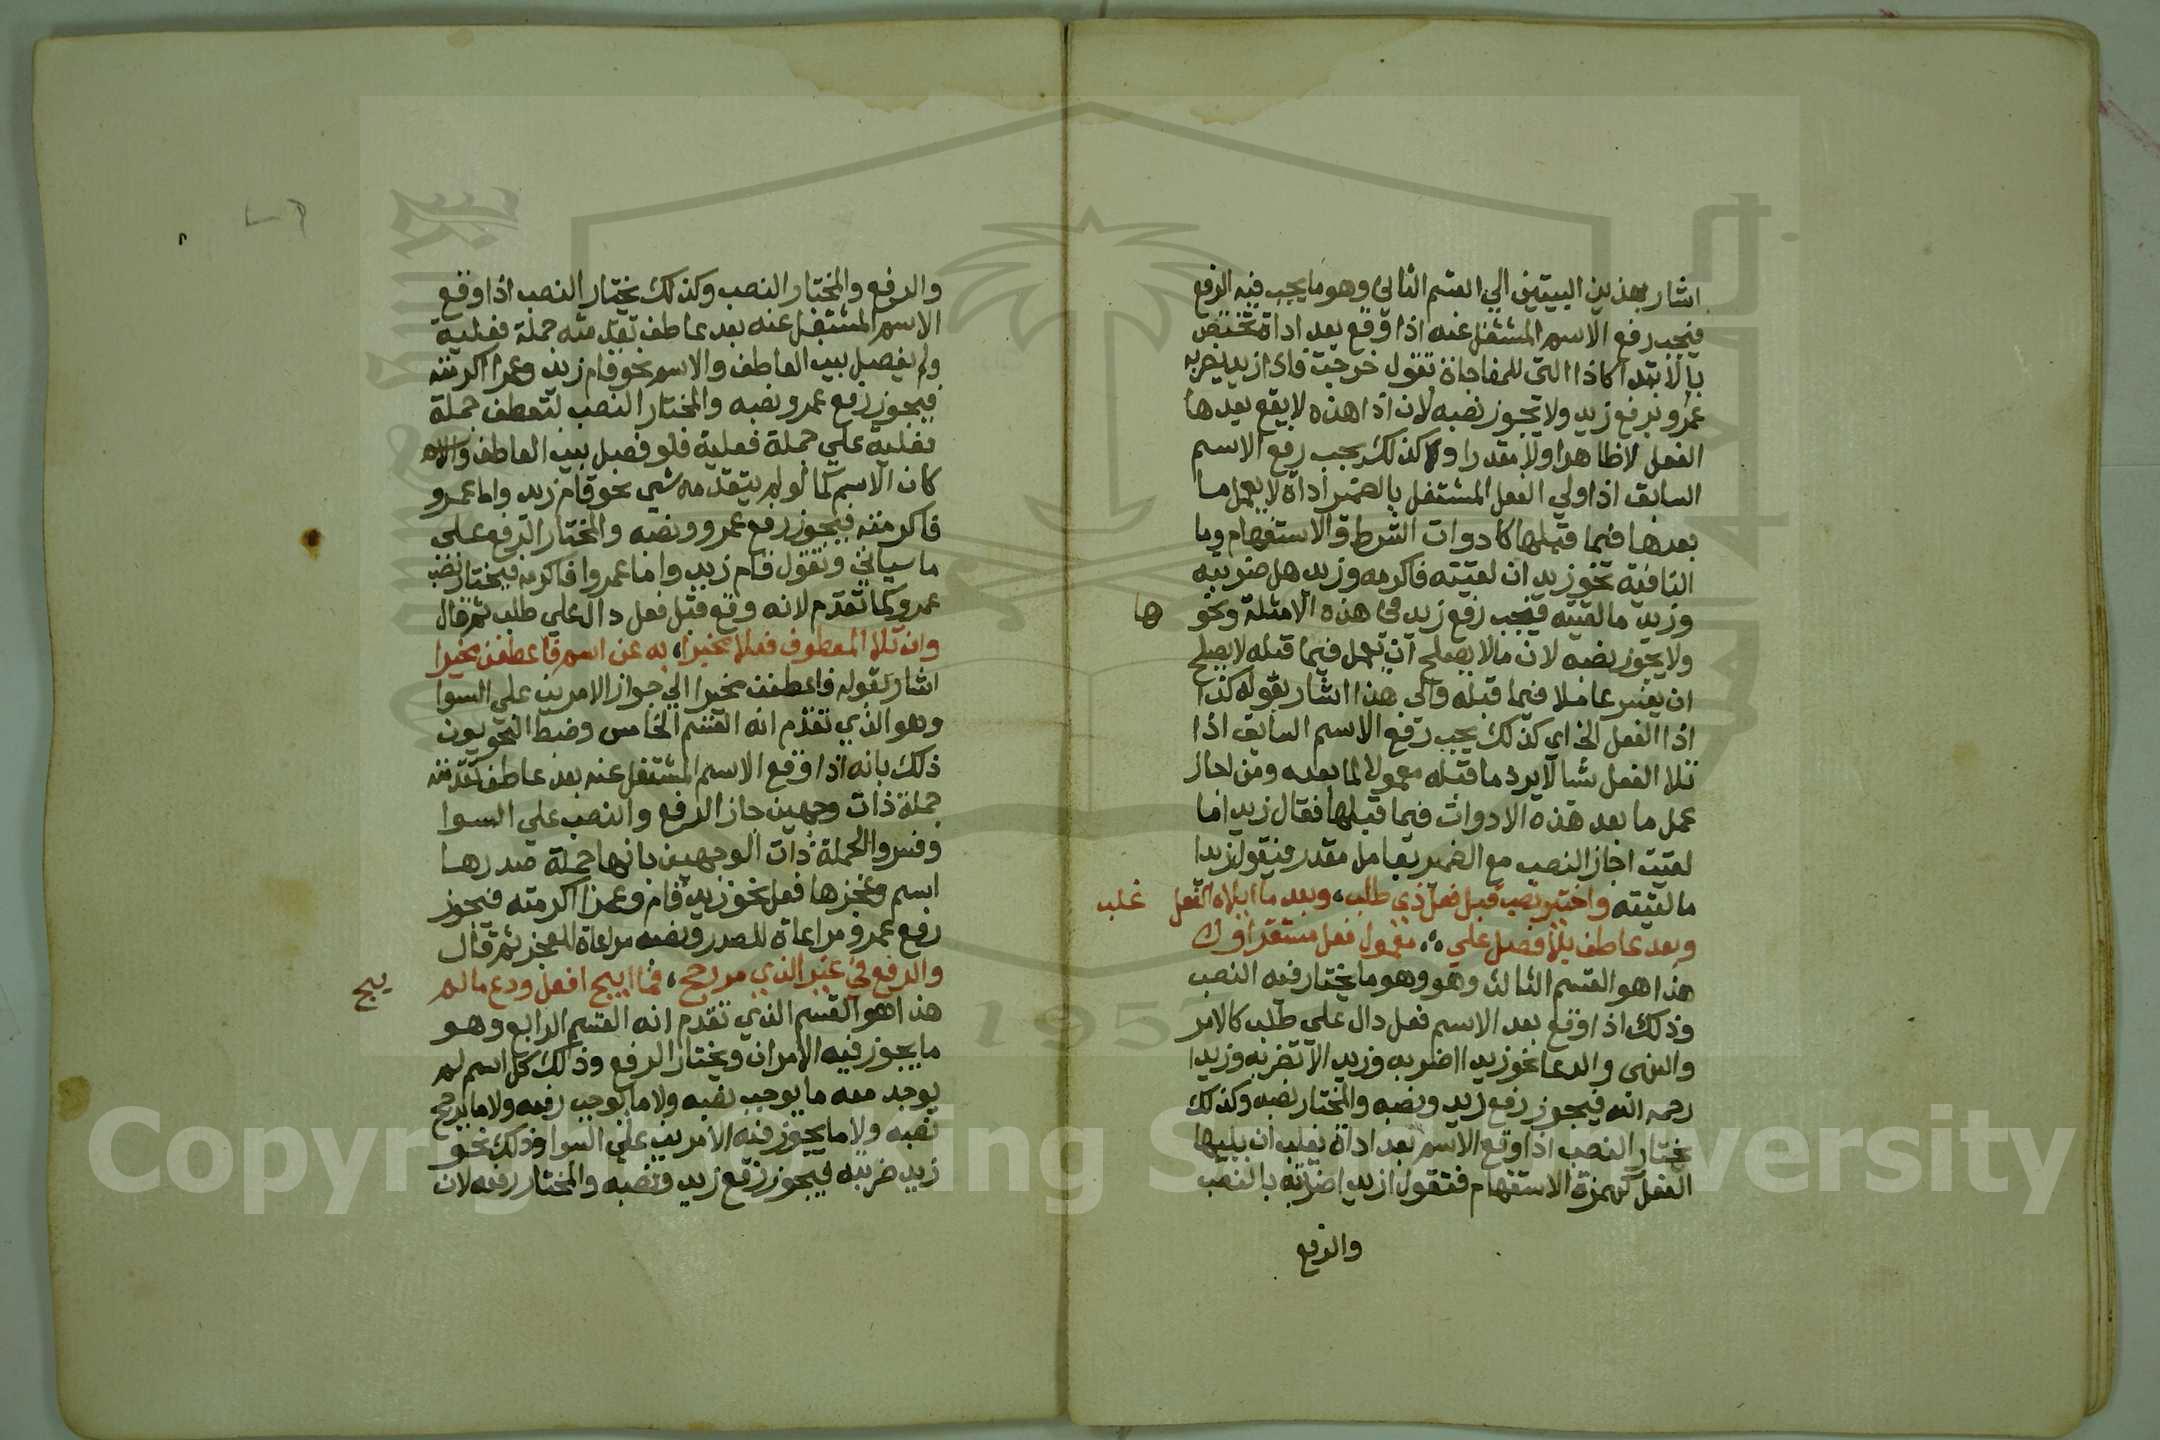 اشار بهذين البيتين الي القسم الثاني وهو ما يجب فيه الرفع
فيجب رفع الاسم المشتغل عنه اذا وقع بعد اداة تختص
بالابتدا كاذا التي للمفاجاة تقول خرجت فاذا زيد يضربه
عمرو برفع زيد ولا يجوز نصبه لان اذا هذه لا يقع بعدها
الفعل لا ظاهرا ولا مقدرا وكذلك يجب رفع الاسم
السابق اذا ولي الفعل المشتغل بالضمير اداة لا يعمل ما
بعدها فيما قبلها كادوات الشرط والاستفهام وما
النافية نحو زيد ان لقيته فاكرمه وزيد هل ضربته
وزيد ما لقيته فيجب رفع زيد في هذه الامثلة ونحو ها
ولا يجوز نصبه لان ما لا يصلح ان يعمل فيما قبله لا يصلح
ان يفسر عاملا فيما قبله والي هذا اشار بقوله كذا
اذا الفعل الخ اي كذلك يجب رفع الاسم السابق اذا
تلا الفعل شيا لا يرد ما قبله معمولا لما بعده ومن اجاز
عمل ما بعد هذه الادوات فيما قبلها فقال زيدا ما
لقيت اجاز النصب مع الضمير بعامل مقدر فيقول زيدا
ما لقيته واختير نصب قبل فعل ذي طلب، وبعد ما ايلاه الفعل غلب
وبعد عاطف بلا فصل علي، معمول فعل مستقر اولا
هذا هو القسم الثالث وهو وهو ما يختار فيه النصب
وذلك اذا وقع بعد الاسم فعل دال علي طلب كالامر
والنهي والدعا نحو زيدا اضربه وزيدا لا تضربه وزيدا
رحمه الله فيجوز رفع زيد ونصبه والمختار نصبه وكذلك
يختار النصب اذا وقع الاسم بعد اداة يغلب ان يليها
الفعل كهمزة الاستفهام فتقول ازيدا ضربته بالنصب
والرفع
والرفع والمختار النصب وكذلك يختار النصب اذا وقع
الاسم المشتغل عنه بعد عاطف تقدمته جملة فعلية
ولم يفصل بين العاطف والاسم نحو قام زيد وعمرا اكرمته
فيجوز رفع عمرو ونصبه والمختار النصب لتعطف جملة
فعلية علي جملة فعلية فلو فصل بين العاطف والاسم
كان الاسم كما لو لم يتقدمه شي نحو قام زيد واما عمرو
فاكرمته فيجوز رفع عمرو ونصبه والمختار الرفع علي
ما سياتي وتقول قام زيد واما عمروا فاكرمه فيختار نصب
عمرو كما تقدم لانه وقع قبل فعل دال علي طلب ثم قال
وان تلا المعطوف فعلا مخبرا، به عن اسم فاعطفن مخيرا
اشار بقوله فاعطفن مخيرا الي جواز الامرين علي السوا
وهو الذي تقدم انه القسم الخامس وضبط النحويون
ذلك بانه اذا وقع الاسم المشتغل عنه بعد عاطف تقدمته
جملة ذات وجهين جاز الرفع والنصب علي السوا
وفسروا الجملة ذات الوجهين بانها جملة صدرها
اسم وعجزها فعل نحو زيد قام وعمرا اكرمته فيجوز
رفع عمرو مراعاة للصدر ونصبه مراعاة للعجز ثم قال
والرفع في غير الذي مر رجح، فما ابيح افعل ودع ما لم يبح
هذا هو القسم الذي تقدم انه القسم الرابع وهو
ما يجوز فيه الامران ويختار الرفع وذلك كل اسم لم
يوجد معه ما يوجب نصبه ولا ما يوجب رفعه ولا ما يرجح
نصبه ولا ما يجوز فيه الامرين علي السوا وذلك نحو
زيد ضربته فيجوز رفع زيد ونصبه والمختار رفعه لان
Copyright © King Saud University
1957